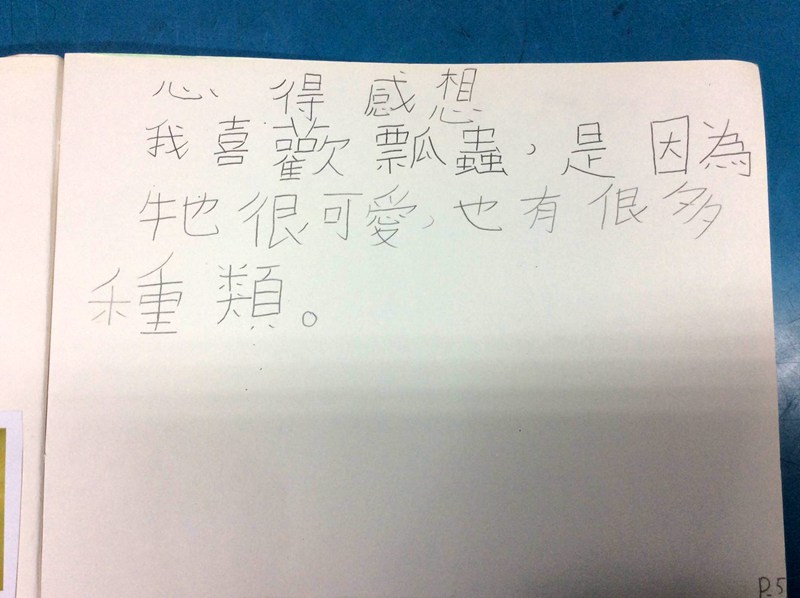 心得感想
我喜歡瓢蟲，是因為
牠很可愛，也有很多
種類。
P.5